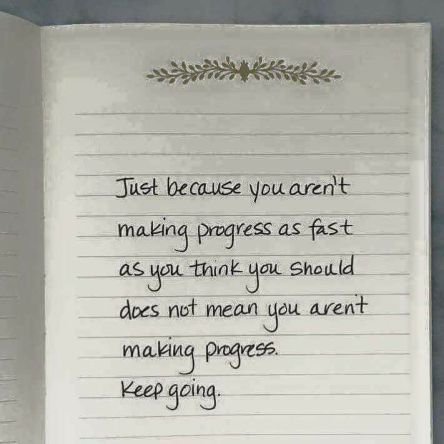 Just because you aren't
making progress as fast
as you think you should
does not mean you aren't
making progress.
Keep going.